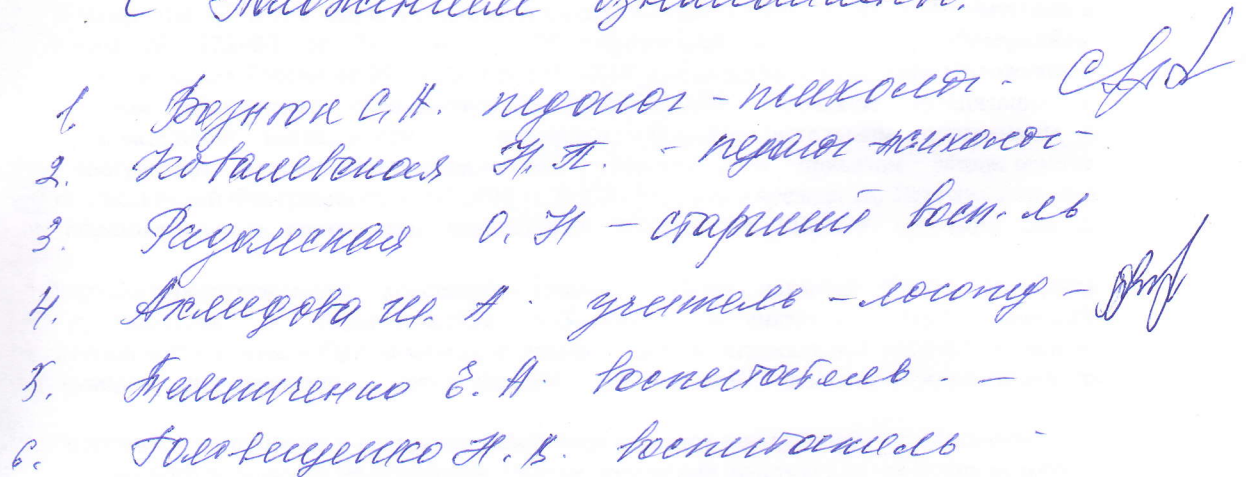 С Положением ознакомлены:
1. Вознюк С.Н. педагог-психолог -
2. Ковалевская Н.П. - педагог-психолог -
3. Радомская О.Н - старший восп-ль
4. Ахмедова Ш.А. учитель-логопед -
5. Темниченко Е.А. воспитатель. -
6. Головещенко Н.В. воспитатель -